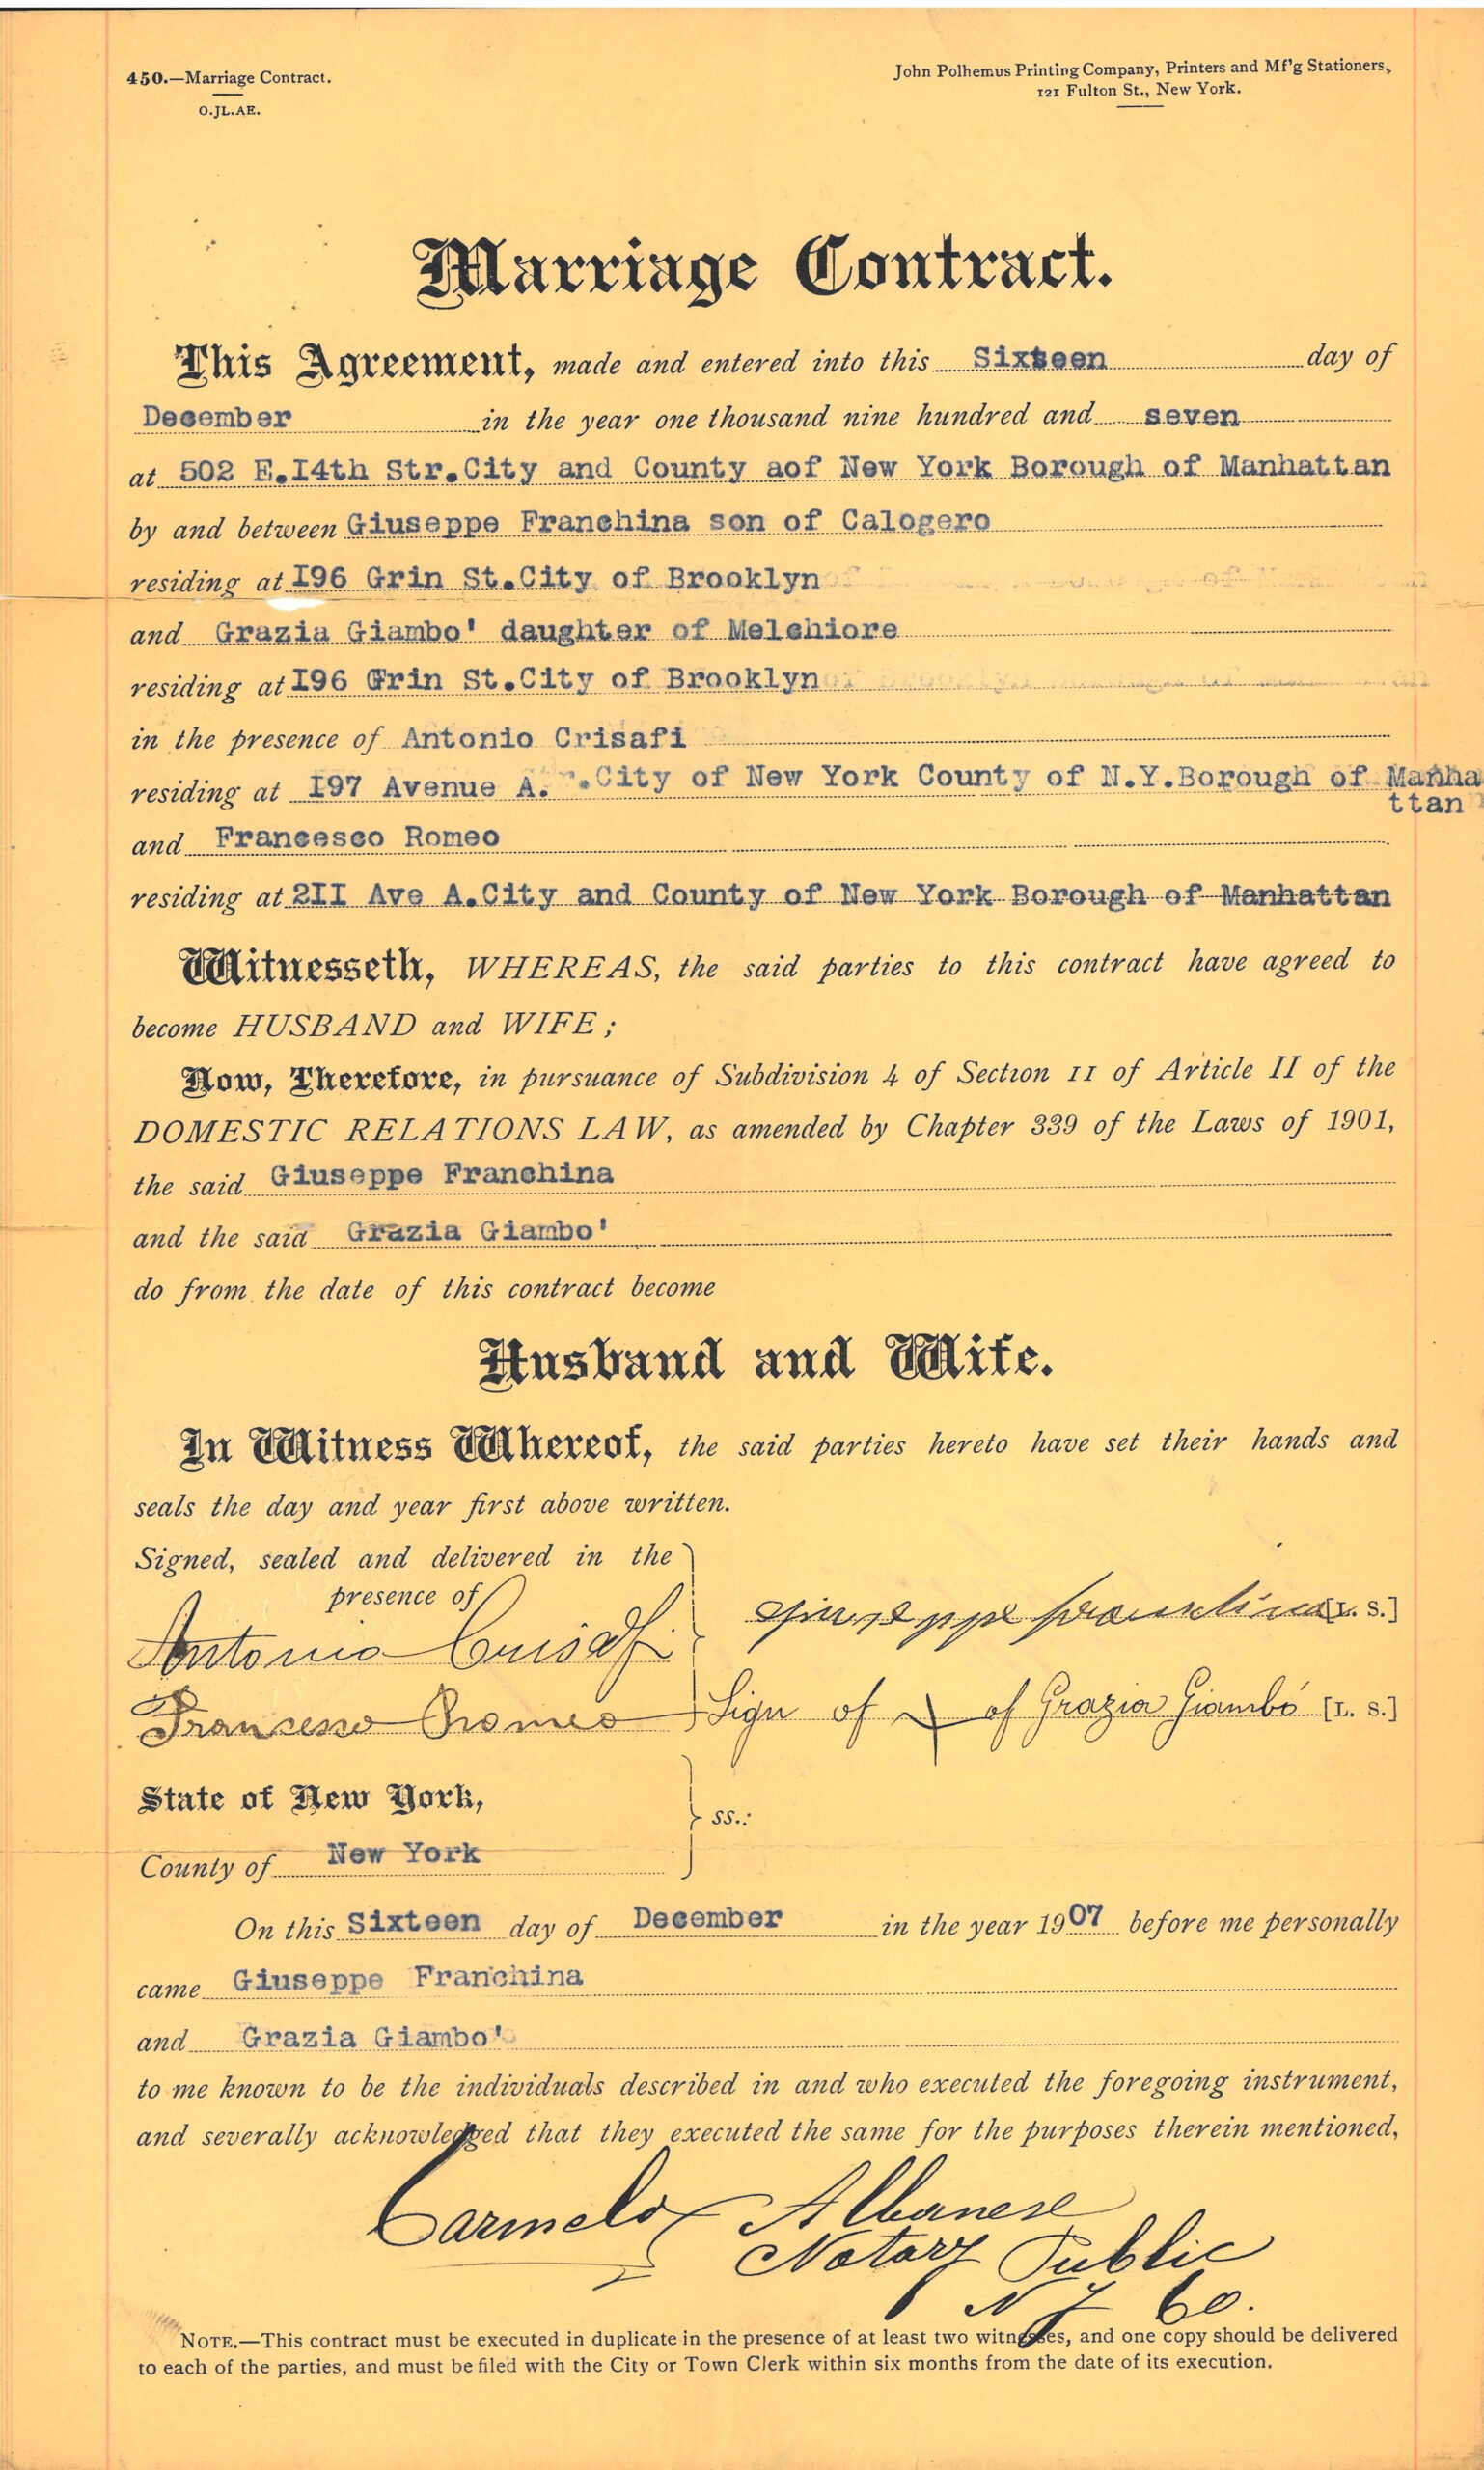 450.—Marriage Contract.
O.JL.AE.
John Polhemus Printing Company, Printers and Mf'g Stationers,
121 Fulton St., New York.
Marriage Contract.
This Agreement, made and entered into this Sixteen day of
December in the year one thousand nine hundred and seven
at 502 E.I4th Str.City and County aof New York Borough of Manhattan
by and between Giuseppe Franchina son of Calogero
residing at I96 Grin St.City of Brooklyn
and Grazia Giambo' daughter of Melchiore
residing at I96 Grin St.City of Brooklyn
in the presence of Antonio Crisafi
residing at I97 Avenue A. .City of New York County of N.Y.Borough of Manha
ttan
and Francesco Romeo
residing at 2II Ave A.City and County of New York Borough of Manhattan
Witnesseth, WHEREAS, the said parties to this contract have agreed to
become HUSBAND and WIFE;
Now, Therefore, in pursuance of Subdivision 4 of Section 11 of Article II of the
DOMESTIC RELATIONS LAW, as amended by Chapter 339 of the Laws of 1901,
the said Giuseppe Franchina
and the said Grazia Giambo'
do from the date of this contract become
Husband and Wife.
In Witness Whereof, the said parties hereto have set their hands and
seals the day and year first above written.
Signed, sealed and delivered in the
presence of
Antonio Crisafi
giuseppe franchina [L. S.]
Francesco Romeo
Sign of + of Grazia Giambó [L. S.]
State of New York,
ss.:
County of New York
On this Sixteen day of December in the year 1907 before me personally
came Giuseppe Franchina
and Grazia Giambo'
to me known to be the individuals described in and who executed the foregoing instrument,
and severally acknowledged that they executed the same for the purposes therein mentioned,
Carmelo Albanese
Notary Public
N Y Co.
NOTE.—This contract must be executed in duplicate in the presence of at least two witnesses, and one copy should be delivered
to each of the parties, and must be filed with the City or Town Clerk within six months from the date of its execution.